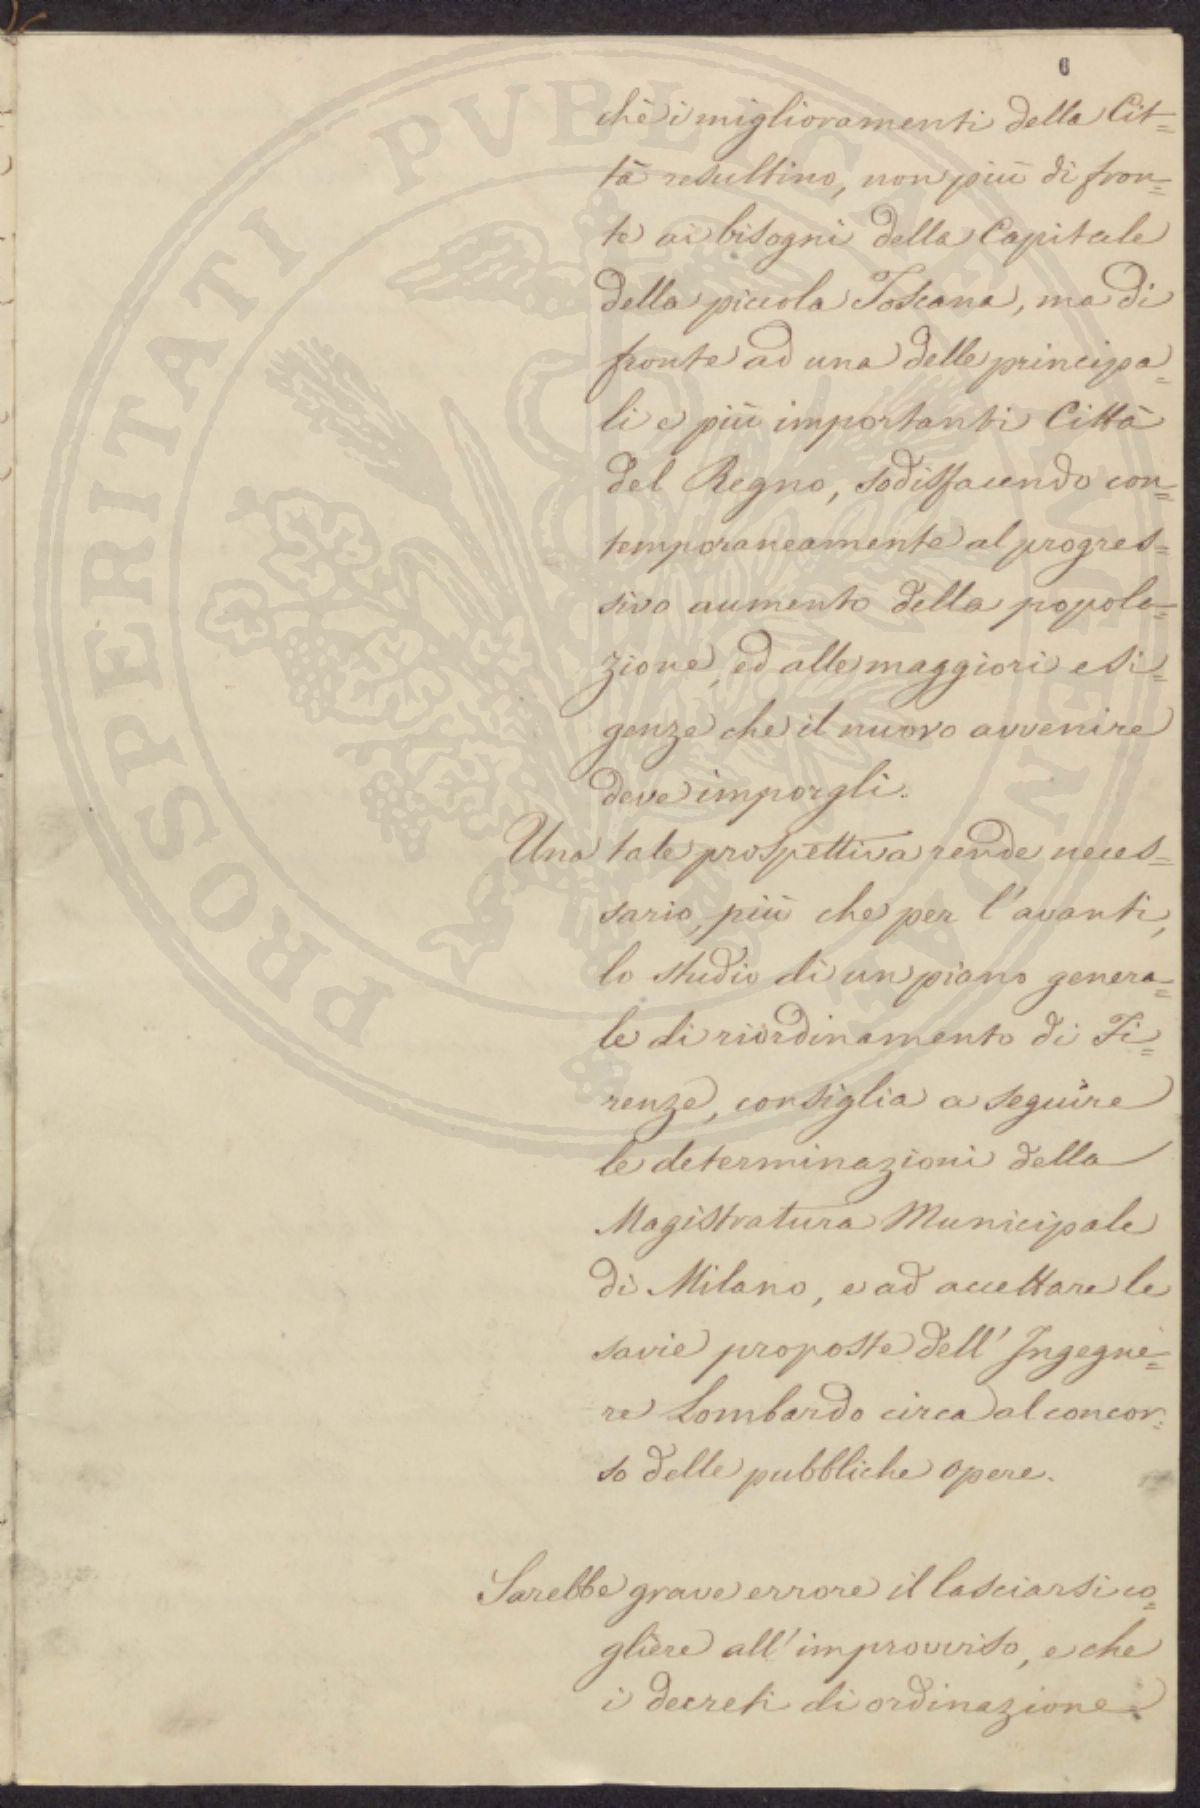 6
chè i miglioramenti della Cit=
tà resultino, non più di fron=
te ai bisogni della Capitale
della piccola Toscana, ma di
fronte ad una delle principa=
li e più importanti Città
del Regno, sodisfacendo con=
temporaneamente al progres=
sivo aumento della popola=
zione, ed alle maggiori esi=
genze che il nuovo avvenire
deve imporgli.
Una tale prospettiva rende neces=
sario, più che per l'avanti,
lo studio di un piano genera=
le di riordinamento di Fi=
renze, consiglia a seguire
le determinazioni della
Magistratura Municipale
di Milano, e ad accettare le
savie proposte dell'Ingegne=
re Lombardo circa al concor=
so delle pubbliche opere.
Sarebbe grave errore il lasciarsi co=
gliere all'improvviso, e che
i decreti di ordinazione
PROSPERITATI PVBLICAE AVGENDAE